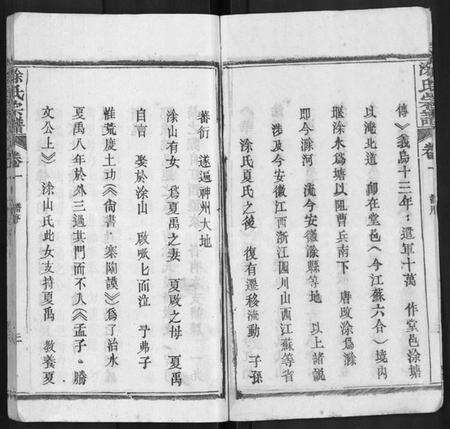 傳》義烏十三年：遣軍十萬 作堂邑涂塘
以淹北道 卽在堂邑《今江蘇六合》境內
堰涂水爲塘以阻曹兵南下 唐改涂爲滁
卽今滁河 流今安徽滁縣等地 以上諸説
涉及今安徽江西浙江四川山西江蘇等省
涂氏夏氏之後 復有遷移流動 子孫
蕃衍 遂遍神州大地
涂山有女 爲夏禹之妻 夏啟之母 夏禹
自言 娶於涂山 啟呱七而泣 予弗子
惟荒度土功《尙書·臯陶謨》爲了治水
夏禹八年於外三過其門而不入《孟子·勝
文公上》 涂山氏此女支持夏禹 教養夏
涂氏宗譜 卷一
涂氏宗譜 卷一
三